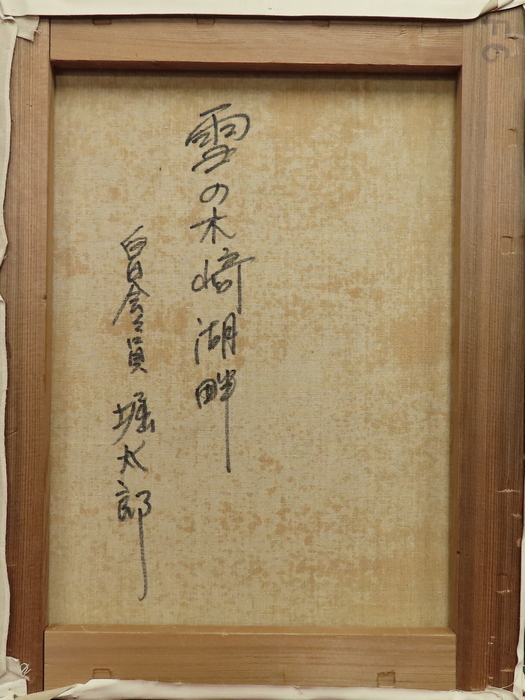 雪の木崎湖畔
白日会々員 堀太郎
F6